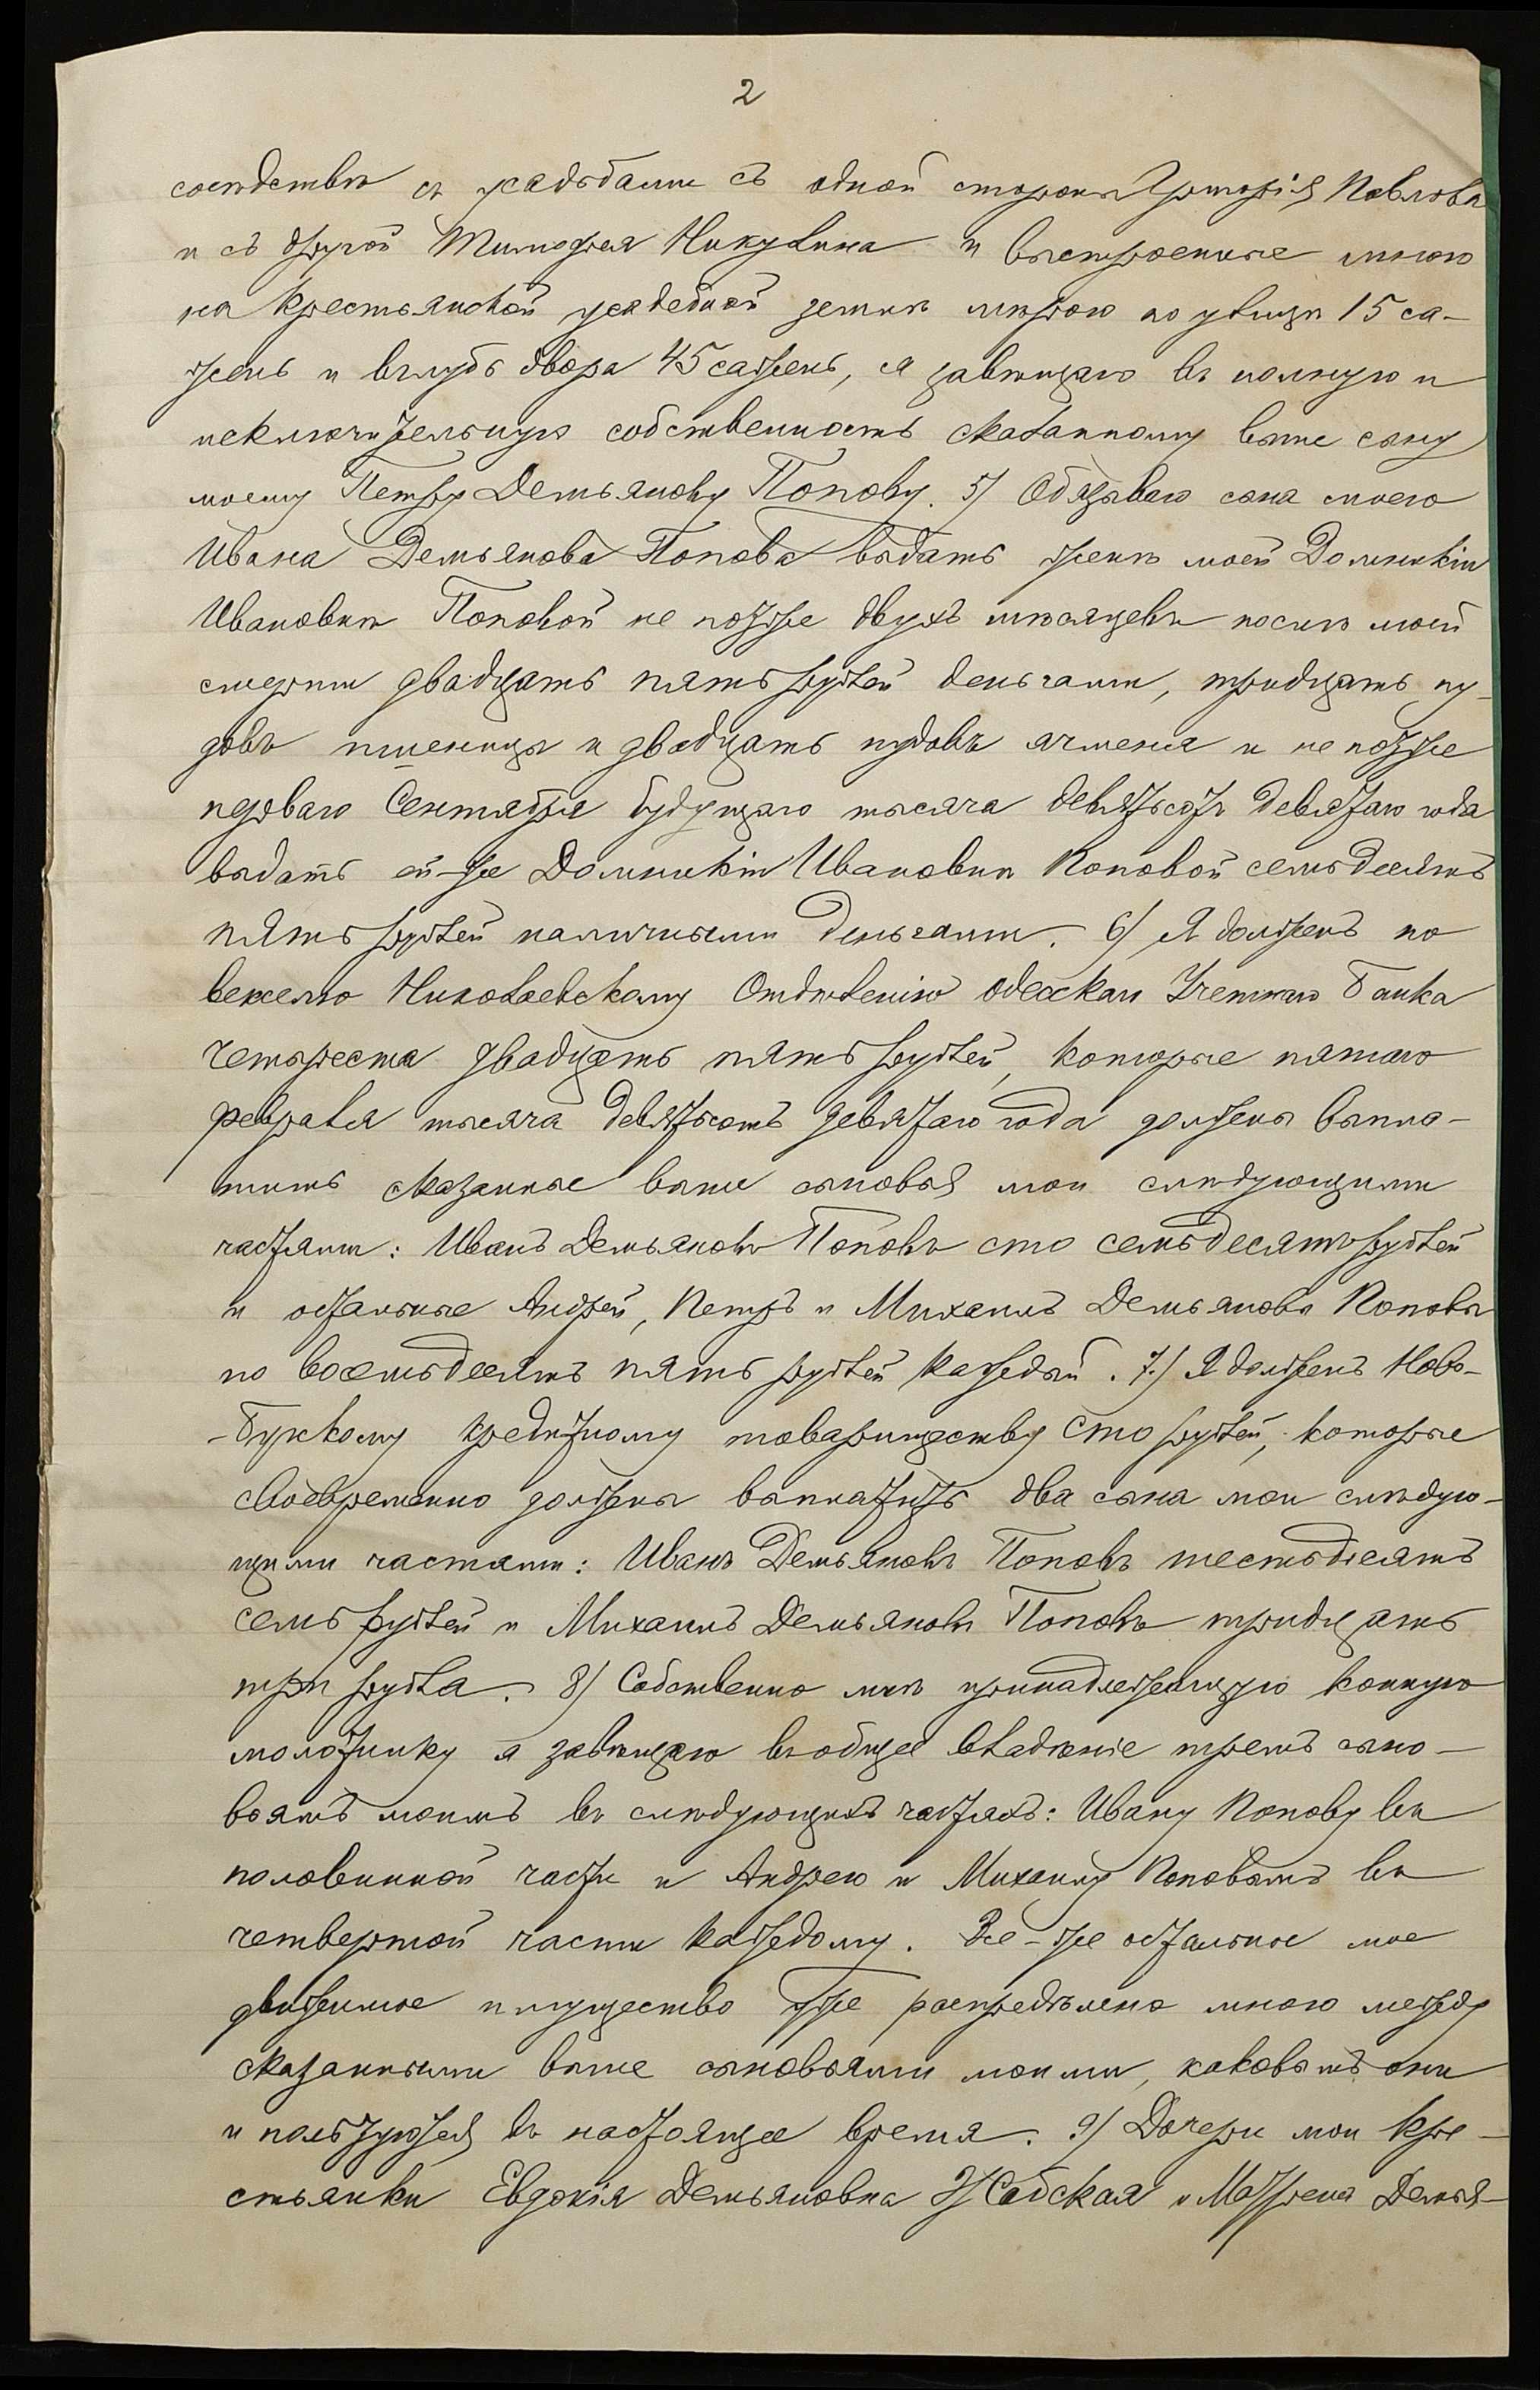 2
сосѣдствѣ съ усадьбами съ одной стороны Григорія Павлова
и съ другой Тимофея Никулина и выстроенные мною
на крестьянской усадебной землѣ мѣрою по улицѣ 15 са-
жень и вглубь двора 45 сажень, я завѣщаю въ полную и
исключительную собственность сказанному выше сыну
моему Петру Демьянову Попову. 5) Обязываю сына моего
Ивана Демьянова Попова выдать женѣ моей Домникіи
Ивановнѣ Поповой не позже двухъ мѣсяцевъ послѣ моей
смерти двадцать пять рублей деньгами, тридцать пу-
довъ пшеницы и двадцать пудовъ ячменя и не позже
перваго Сентября будущаго тысяча девятьсотъ девятаго года
выдать ей-же Домникіи Ивановнѣ Поповой семьдесятъ
пять рублей наличными деньгами. 6) Я долженъ по
векселю Николаевскому Отдѣленію Одесскаго Учетнаго Банка
четыреста двадцать пять рублей, которые пятаго
февраля тысяча девятьсотъ девятаго года должны выпла-
тить сказанные выше сыновья мои слѣдующими
частями: Иванъ Демьяновъ Поповъ сто семьдесятъ рублей
и остальные Андрей, Петръ и Михаилъ Демьяновы Поповы
по восемьдесятъ пять рублей каждый. 7) Я долженъ Ново-
-Бугскому кредитному товариществу сто рублей, которые
своевременно должны выплатить два сына мои слѣдую-
щими частями: Иванъ Демьяновъ Поповъ шестьдесятъ
семь рублей и Михаилъ Демьяновъ Поповъ тридцать
три рубля. 8) Собственно мнѣ принадлежащую конную
молотилку я завѣщаю въ общее владѣніе тремъ сыно-
вьямъ моимъ въ слѣдующихъ частяхъ: Ивану Попову въ
половинной части и Андрею и Михаилу Поповымъ въ
четвертой части каждому. Все-же остальное мое
движимое имущество уже распредѣлено мною между
сказанными выше сыновьями моими, каковымъ они
и пользуются въ настоящее время. 9) Дочери мои кре-
стьянки Евдокія Демьяновна и Матрена Демья-